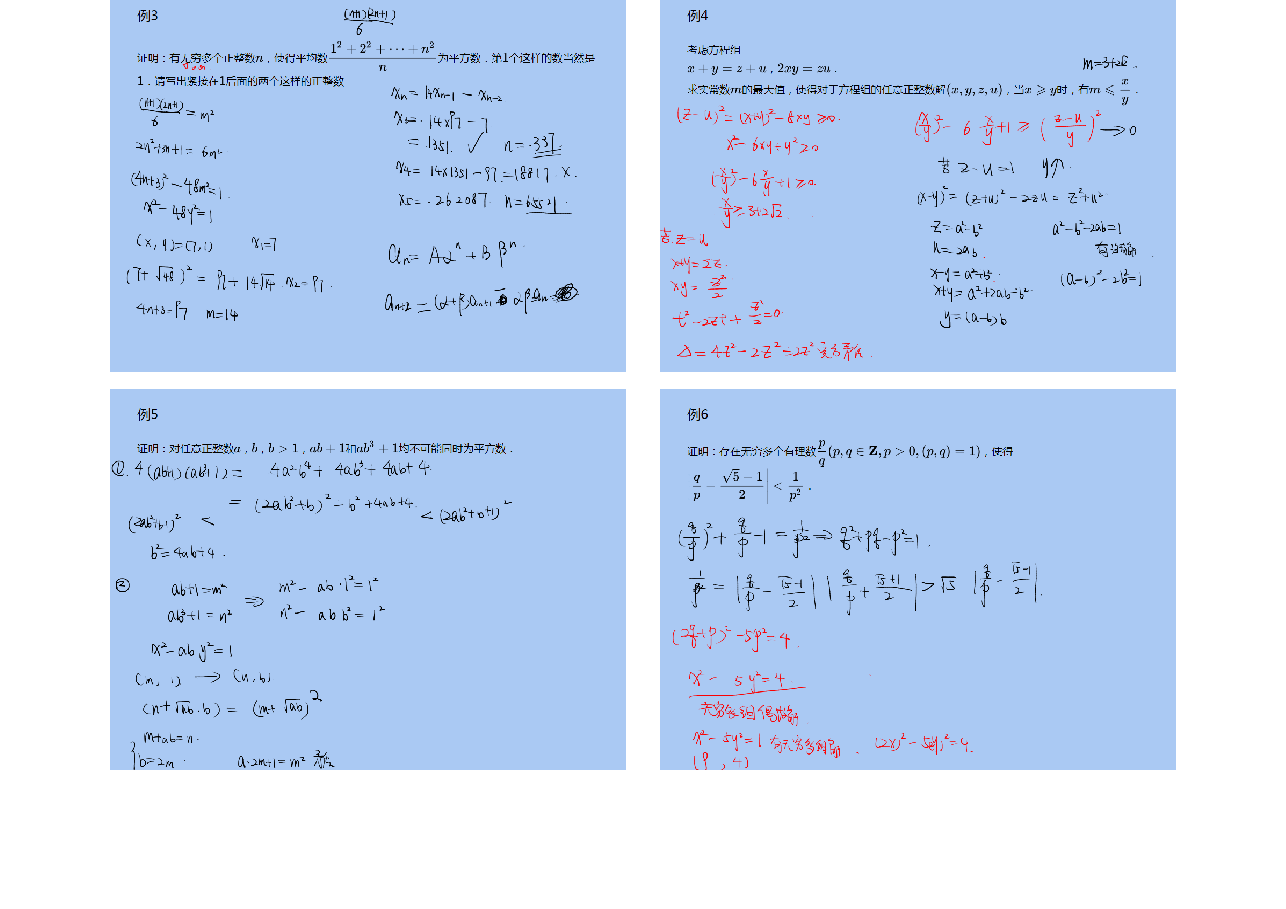 例3
(n+1)(2n+1)
6
证明：有无穷多个正整数n，使得平均数 (1²+2²+⋯+n²)/n 为平方数．第1个这样的数当然是
1．请写出紧接在1后面的两个这样的正整数
(n+1)(2n+1)/6 = m²
2n²+3n+1 = 6m²
(4n+3)² − 48m² = 1.
x² − 48y² = 1
(x, y) = (7, 1)    x₁=7
(7+√48)² = 97+14√48    x₂=97.
4n+3=97    m=14
xₙ = 14xₙ₋₁ − xₙ₋₂
x₃ = 14×97 − 7
= 1351. √    n = 337.
x₄ = 14×1351 − 97 = 18817. ×.
x₅ = 262087.    n = 65521.
aₙ = Aαⁿ + Bβⁿ.
aₙ₊₂ = (α+β)aₙ₊₁ − αβaₙ
例4
考虑方程组
x + y = z + u，2xy = zu．
m=3+2√2.
求实常数m的最大值，使得对于方程组的任意正整数解(x, y, z, u)，当x ⩾ y时，有m ⩽ x/y．
(z−u)² = (x+y)² − 8xy ≥ 0.
x² − 6xy + y² ≥ 0
(x/y)² − 6x/y + 1 ≥ 0
x/y ≥ 3+2√2.
若z=u
x+y = 2z.
xy = z²/2
t² − 2zt + z²/2 = 0.
Δ = 4z² − 2z² = 2z²
(x/y)² − 6 x/y + 1 ≥ ((z−u)/y)² → 0
若 z−u=1    y↑.
(x−y)² = (z+u)² − 2zu = z²+u²
z = a²−b²    a²−b²−2ab=1
u = 2ab
x−y = a²+b²    (a−b)² − 2b² = 1
x+y = a²+2ab−b²
y = (a−b)b
例5
证明：对任意正整数a，b，b > 1，ab + 1和ab³ + 1均不可能同时为平方数．
① 4(ab+1)(ab³+1) = 4a²b⁴ + 4ab³ + 4ab + 4.
= (2ab²+b)² − b² + 4ab + 4.
< (2ab²+b+1)²
(2ab²+b−1)² <
b² = 4ab+4.
②
ab+1=m²    ⇒    m² − ab·1² = 1²
ab³+1=n²    n² − ab b² = 1²
x² − ab y² = 1
(m, 1) → (n, b)
(n+√ab·b) = (m+√ab)²
m²+ab=n.
b=2m.    a·2m+1=m² 矛盾
例6
证明：存在无穷多个有理数p/q (p, q ∈ Z, p > 0, (p, q) = 1)，使得
q/p − (√5 − 1)/2 | < 1/p²．
(q/p)² + q/p − 1 = 1/p² ⇒ q²+pq−p²=1.
1/p² = |q/p − (√5−1)/2| |q/p + (√5+1)/2| > √5 |q/p − (√5−1)/2|.
(2q+p)² − 5p² = 4.
x² − 5y² = 4.
x² − 5y² = 1 有无穷多组解．    (2x)² − 5(2y)² = 4.
(9, 4)